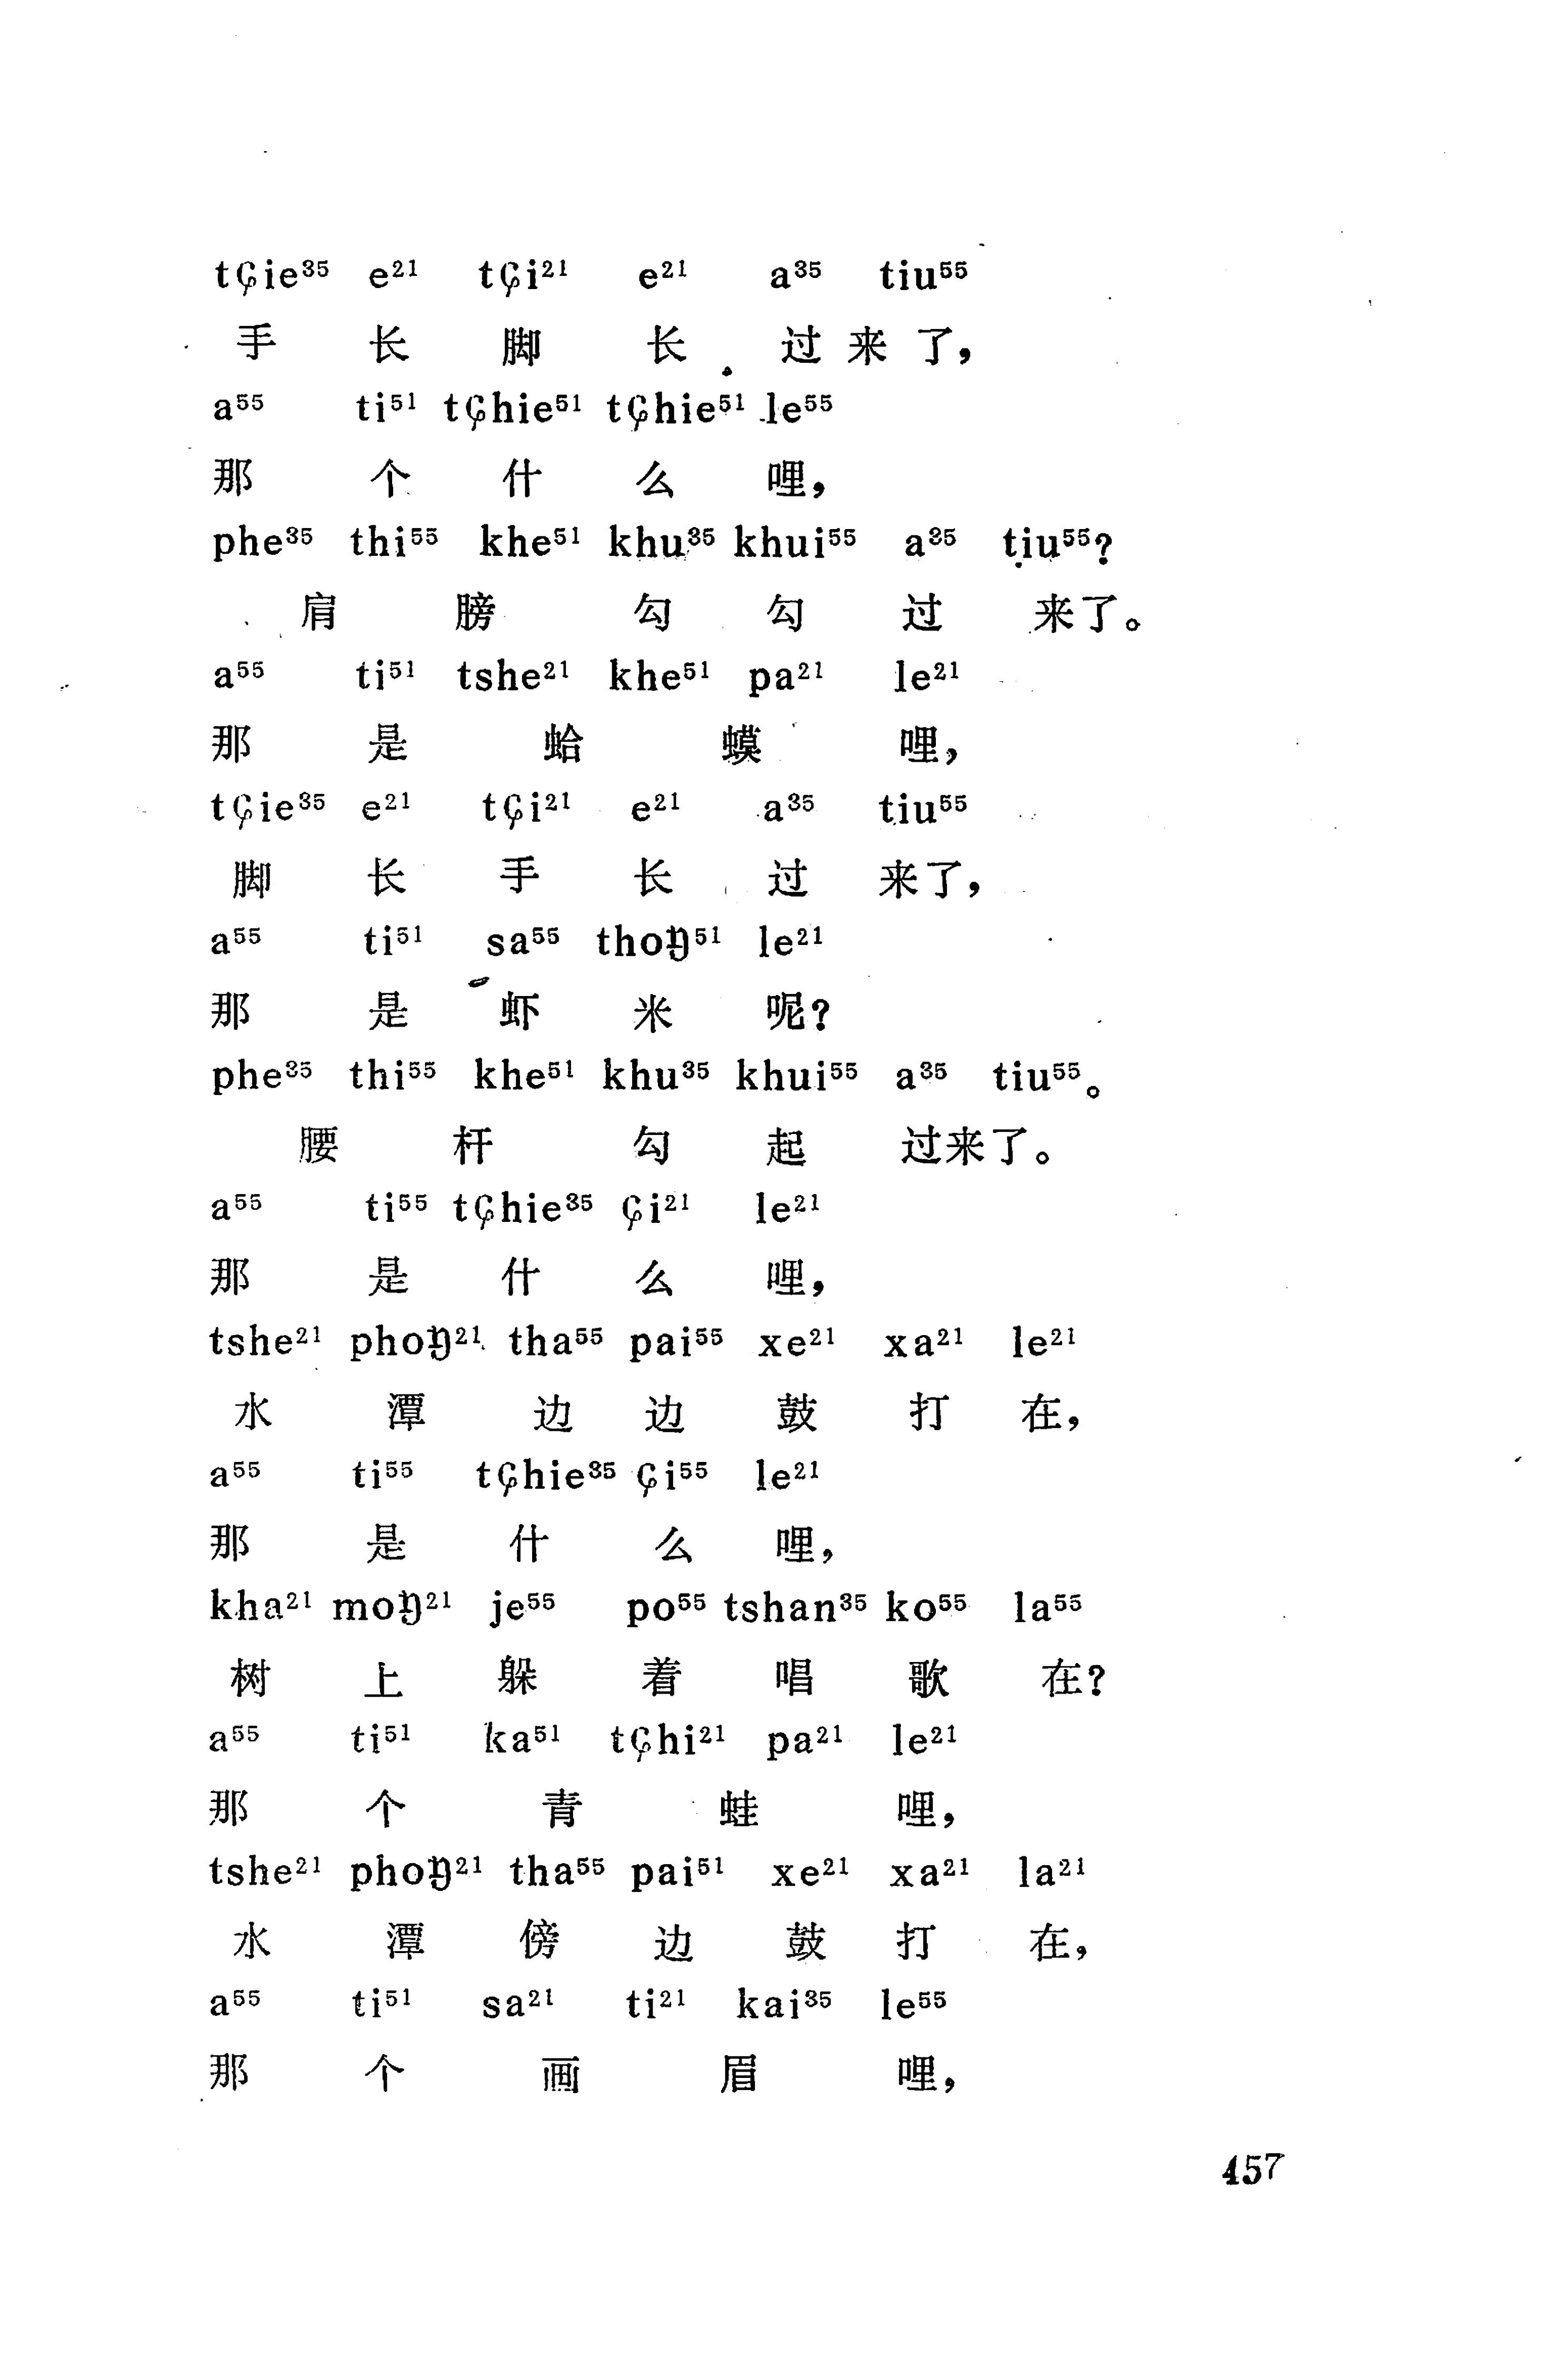 tɕie³⁵ e²¹ tɕi²¹ e²¹ a³⁵ tiu⁵⁵
手 长 脚 长 过 来 了，
a⁵⁵ ti⁵¹ tɕhie⁵¹ tɕhie⁵¹ le⁵⁵
那 个 什 么 哩，
phe³⁵ thi⁵⁵ khe⁵¹ khu³⁵ khui⁵⁵ a³⁵ tiu⁵⁵?
肩 膀 勾 勾 过 来了。
a⁵⁵ ti⁵¹ tshe²¹ khe⁵¹ pa²¹ le²¹
那 是 蛤 蟆 哩，
tɕie³⁵ e²¹ tɕi²¹ e²¹ a³⁵ tiu⁵⁵
脚 长 手 长 过 来了，
a⁵⁵ ti⁵¹ sa⁵⁵ thoŋ⁵¹ le²¹
那 是 虾 米 呢？
phe³⁵ thi⁵⁵ khe⁵¹ khu³⁵ khui⁵⁵ a³⁵ tiu⁵⁵。
腰 杆 勾 起 过来了。
a⁵⁵ ti⁵⁵ tɕhie³⁵ ɕi²¹ le²¹
那 是 什 么 哩，
tshe²¹ phoŋ²¹ tha⁵⁵ pai⁵⁵ xe²¹ xa²¹ le²¹
水 潭 边 边 鼓 打 在，
a⁵⁵ ti⁵⁵ tɕhie³⁵ ɕi⁵⁵ le²¹
那 是 什 么 哩，
kha²¹ moŋ²¹ je⁵⁵ po⁵⁵ tshan³⁵ ko⁵⁵ la⁵⁵
树 上 躲 着 唱 歌 在？
a⁵⁵ ti⁵¹ ka⁵¹ tɕhi²¹ pa²¹ le²¹
那 个 青 蛙 哩，
tshe²¹ phoŋ²¹ tha⁵⁵ pai⁵¹ xe²¹ xa²¹ la²¹
水 潭 傍 边 鼓 打 在，
a⁵⁵ ti⁵¹ sa²¹ ti²¹ kai³⁵ le⁵⁵
那 个 画 眉 哩，
457